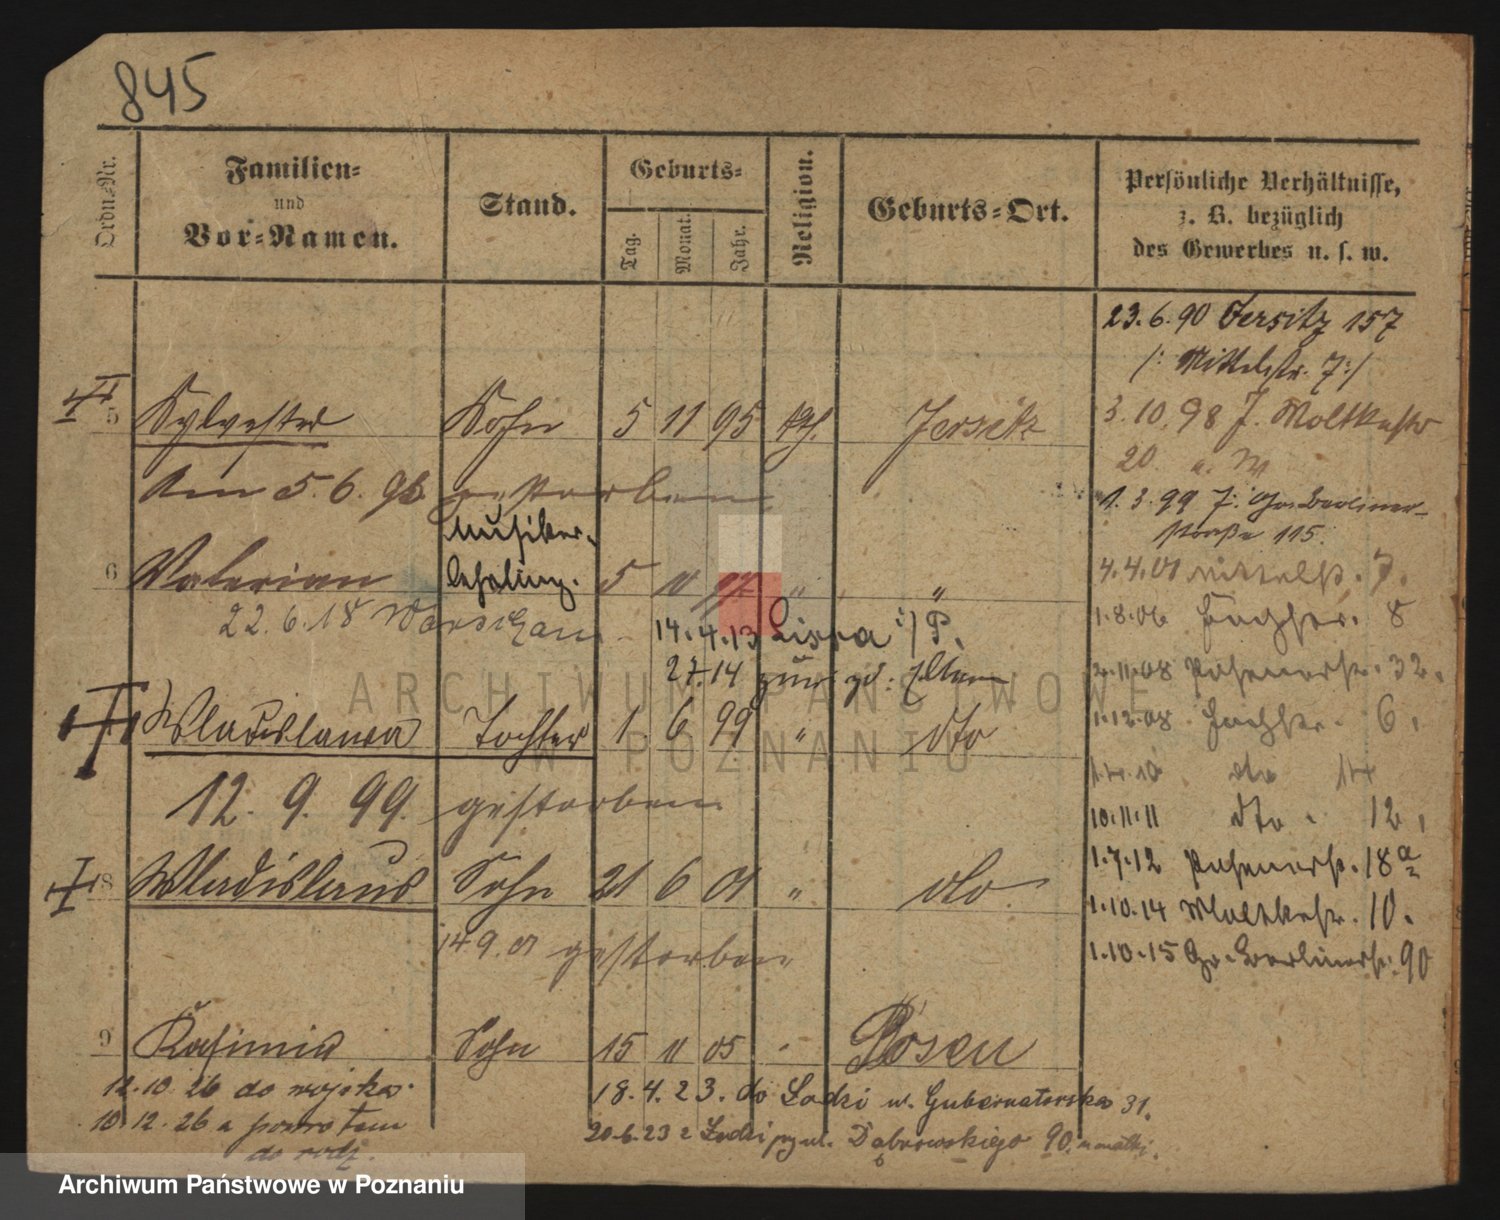 845
Ordn.-Nr.
Familien-
und
Vor-Namen.
Stand.
Geburts-
Tag.
Monat.
Jahr.
Religion.
Geburts-Ort.
Persönliche Verhältnisse,
z. B. bezüglich
des Gewerbes u. s. w.
23.6.90 Jersitz 157
/: Mittelstr. 7:/
5 Sylvester Sohn 5 11 95 kth. Jersitz
3.10.98 J. Moltkestr
20.
Am 5.6.96 gestorben
1.3.99 J. Gr. Berliner-
straße 115.
Musiker-
6 Valerian lehrling. 5 11 97 " "
4.4.01 Mittelstr. 7.
22.6.18 Warschau
14.4.13 Lissa i/P.
1.8.06 8
27.14 zur. zd. Eltern
2.11.08 Posenerstr. 32.
Wladislawa Tochter 1. 6 99 " dto
1.12.08 6.
12. 9. 99. gestorben
1.4.10 dto 14
10.11.11 dto 12,
1.7.12 Posenerstr. 18a
8 Wladislaus Sohn 21 6 01 " dto.
1.10.14 Moltkestr. 10.
14 9. 01 gestorben
1.10.15 Gr. Berlinerstr. 90
9 Kasimir Sohn 15 11 05 Posen
12.10.26 do wojska.
18.4.23. do Łodzi u. Gubernatorska 31.
10.12.26 z powrotem
20.6.23 z Łodzi przy ul. Dąbrowskiego 90. u matki.
do rodz.
ARCHIWUM PAŃSTWOWE
W POZNANIU
Archiwum Państwowe w Poznaniu